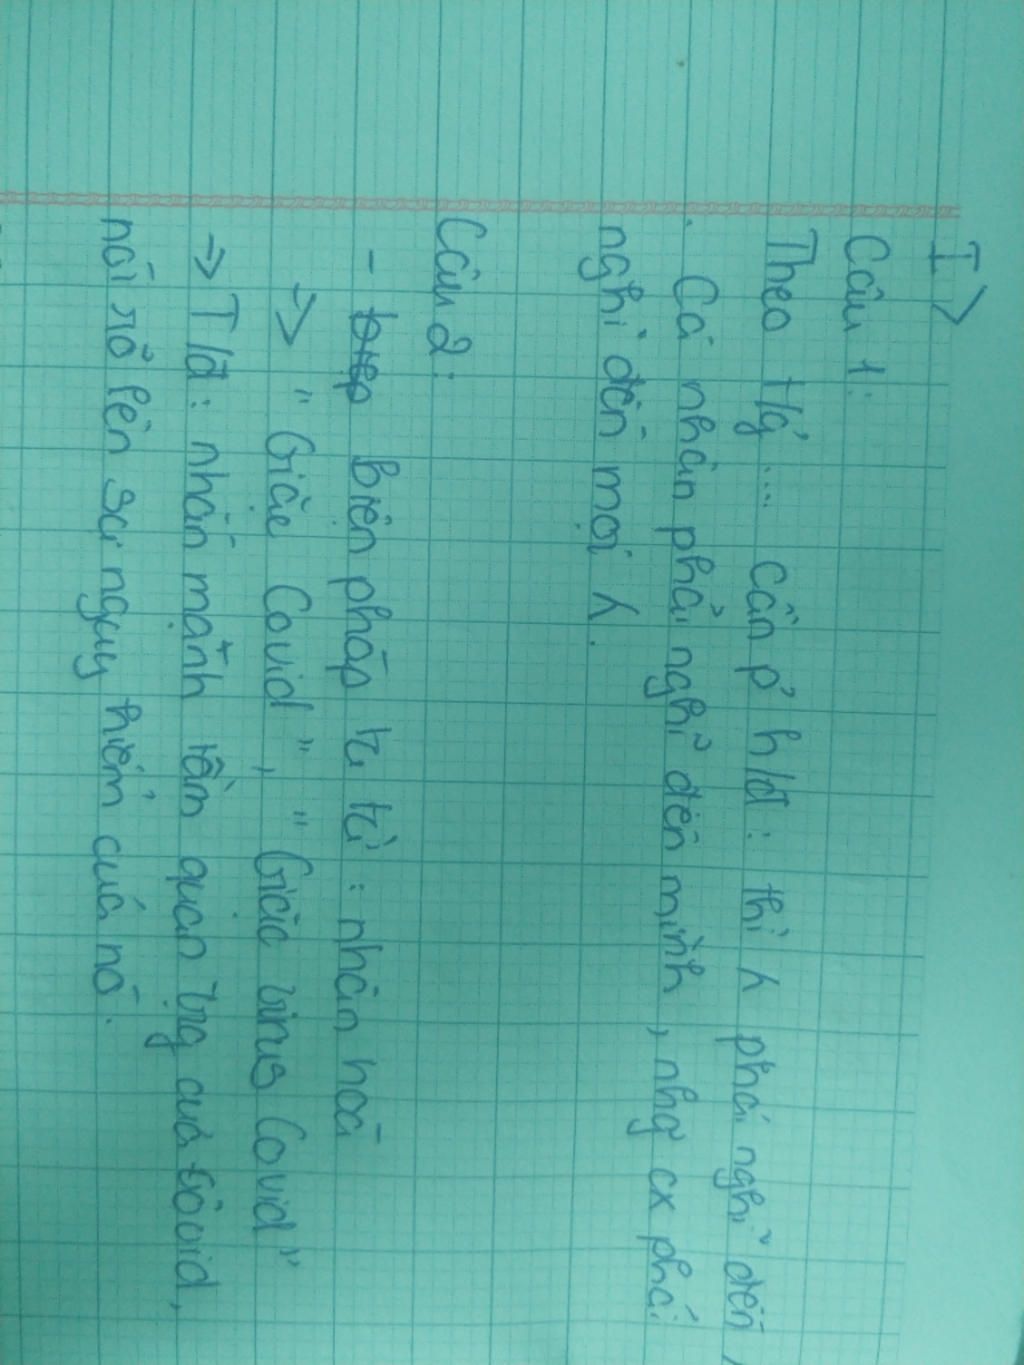 I>
Câu 1:
Theo t/g .... cần p' h/đ : thì k phải nghĩ đến
. Cá nhân phải nghĩ đến mình, nhg cx phải
nghĩ đến mọi k.
Câu 2:
- biện pháp tu từ : nhân hoá
=> " Giặc Covid ", " Giặc virus Covid "
=> T/d : nhấn mạnh tầm quan trg của Covid,
nói rõ lên sự nguy hiểm của nó.